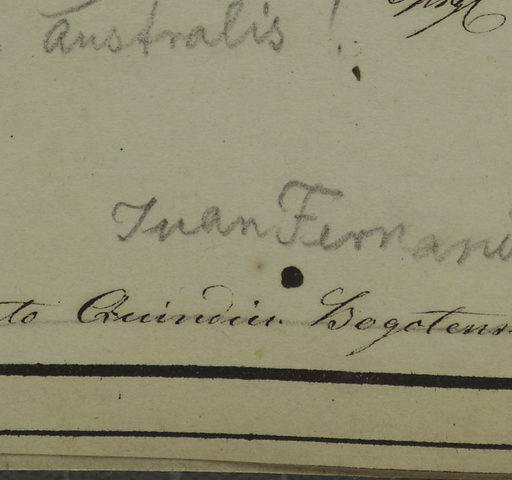 australis!
Juan Fernand
to Quindiu. Bogotens